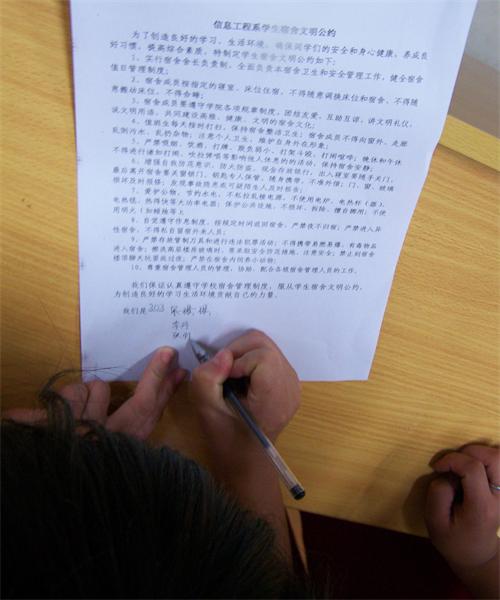 信息工程系学生宿舍文明公约
为了创造良好的学习、生活环境，确保同学们的安全和身心健康，养成良
好习惯，提高综合素质，特制定学生宿舍文明公约如下：
1、实行宿舍舍长负责制，全面负责本宿舍卫生和安全管理工作，健全宿舍
值日管理制度；
2、宿舍成员按指定的寝室、床位住宿，不得随意调换床位和宿舍，不得随
意搬动床位，不得合睡；
3、宿舍成员要遵守学院各项规章制度，团结友爱、互助互谅，讲文明礼仪，
说文明用语，共同建设高雅、健康、文明的宿舍文化；
4、值班生每天按时打扫，保持宿舍整洁卫生；宿舍成员不得向窗外、走廊
乱倒污水、乱扔杂物；注意个人卫生，维护自身外在形象；
5、严禁吸烟、饮酒、打牌、聚众到小、打架斗殴、打闹喧哗；晚休和午休
不得进行诸如打闹、吹拉弹唱等影响他人休息的的活动，保持宿舍安静；
6、增强自我防范意识，防火防盗，现金存放银行，出入寝室要随手关门，
最后离开宿舍要关窗锁门，钥匙专人保管，随身携带，不准外借；门、窗、玻璃
损坏及时报修；发现事故隐患或可疑陌生人及时报告；
7、爱护公物，节约水电，不私拉乱接电源，不使用电炉、电热杯（器）、
电热毯、热得快等大功率电器；保护公共设施，不损坏、拆除、挪自挪用；不使
用明火（如蜡烛等）
8、自觉遵守作息制度，按规定时间返回宿舍，严禁夜不归宿；严禁进入异
性宿舍，不得私自留宿外来人员；
9、严禁存放管制刀具和进行违法犯罪活动；不得携带易燃易爆、有毒物品
进入宿舍；擦洗高层楼房玻璃时，要采取安全防范措施，注意安全；禁止到宿舍
楼顶聊天玩耍或过夜；严禁在宿舍内饲养小动物；
10、尊重宿舍管理人员的管理，协助、配合各级宿舍管理人员的工作。
我们保证认真遵守学校宿舍管理制度，服从学生宿舍文明公约，
为创造良好的学习生活环境贡献自己的力量。
我们是303
李丹